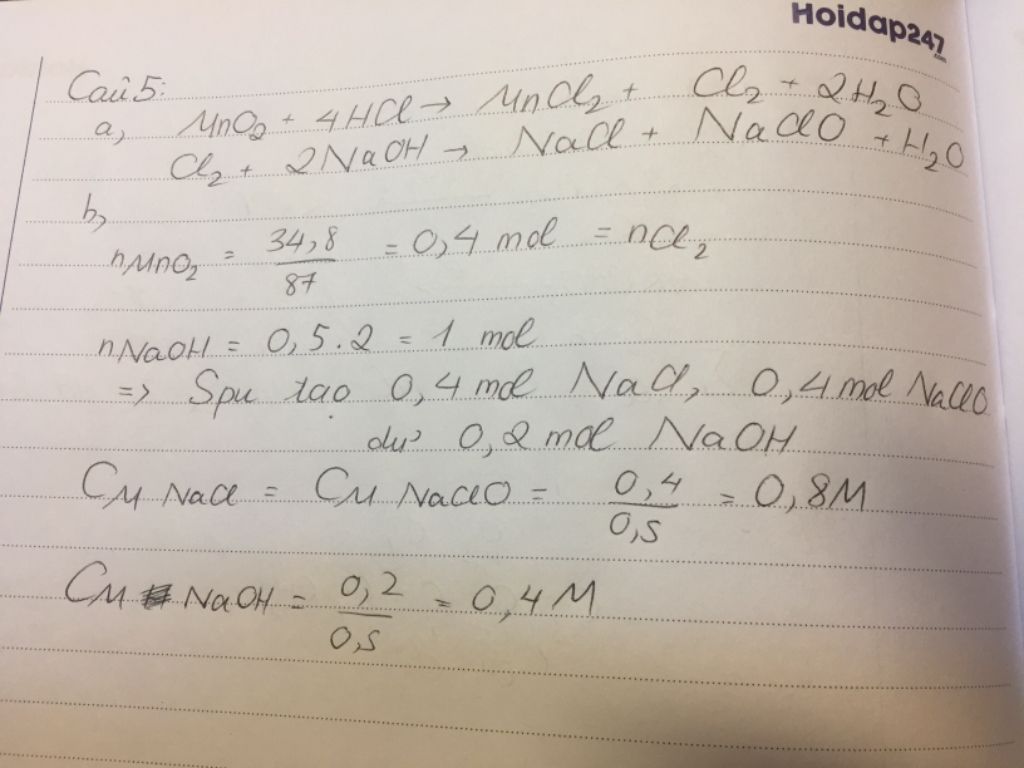 Hoidap247
.com
Câu 5:
a, MnO2 + 4HCl → MnCl2 + Cl2 + 2H2O
Cl2 + 2NaOH → NaCl + NaClO + H2O
b,
nMnO2 = 34,8/87 = 0,4 mol = nCl2
nNaOH = 0,5.2 = 1 mol
=> Spu tạo 0,4 mol NaCl, 0,4 mol NaClO
dư 0,2 mol NaOH
CM NaCl = CM NaClO = 0,4/0,5 = 0,8M
CM NaOH = 0,2/0,5 = 0,4M